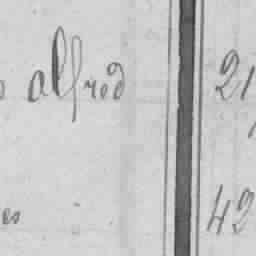 alfred 21
es 42